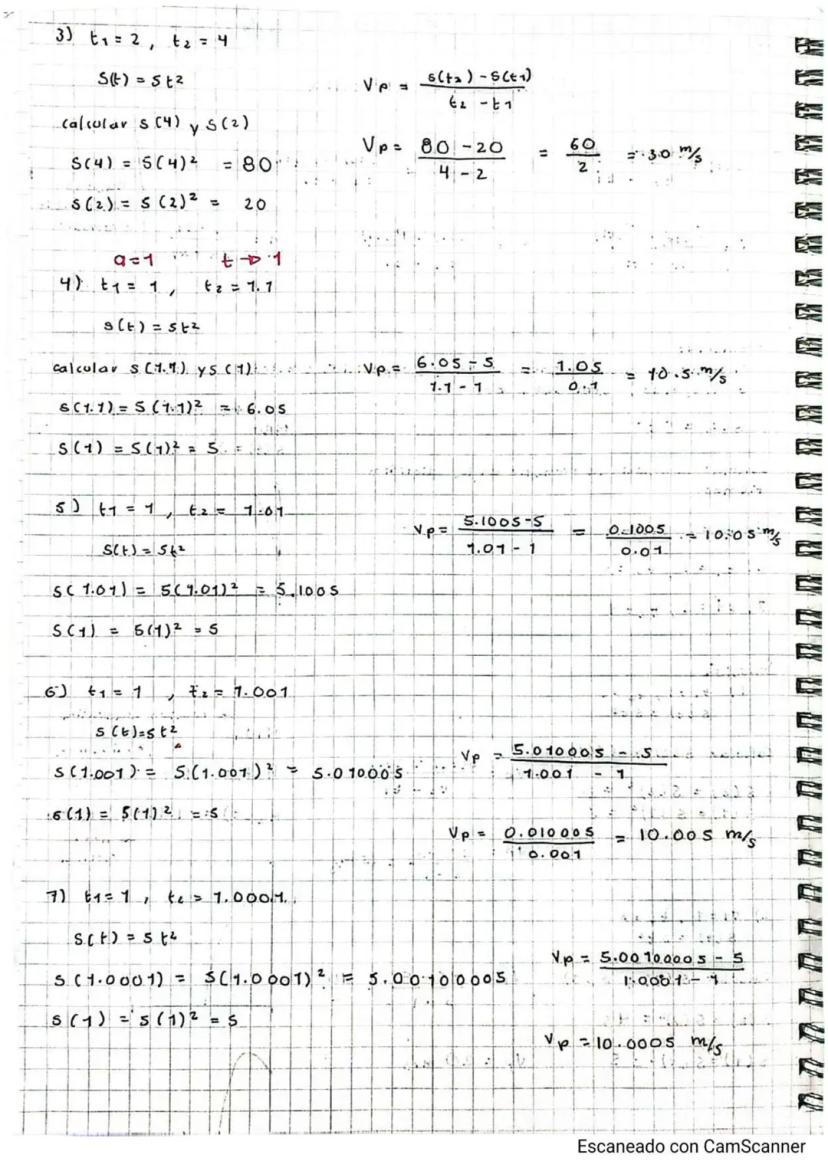 3) t1 = 2 , t2 = 4
S(t) = 5t²
Vp = s(t2) - s(t1) / t2 - t1
calcular s(4) y s(2)
S(4) = 5(4)² = 80
Vp = 80 - 20 / 4 - 2 = 60 / 2 = 30 m/s
s(2) = 5(2)² = 20
a = 1 t → 1
4) t1 = 1 , t2 = 1.1
s(t) = 5t²
calcular s(1.1) y s(1)
Vp = 6.05 - 5 / 1.1 - 1 = 1.05 / 0.1 = 10.5 m/s
s(1.1) = 5(1.1)² = 6.05
S(1) = 5(1)² = 5
5) t1 = 1 , t2 = 1.01
Vp = 5.1005 - 5 / 1.01 - 1 = 0.1005 / 0.01 = 10.05 m/s
S(t) = 5t²
S(1.01) = 5(1.01)² = 5.1005
S(1) = 5(1)² = 5
6) t1 = 1 , t2 = 1.001
s(t) = 5t²
Vp = 5.010005 - 5 / 1.001 - 1
S(1.001) = 5(1.001)² = 5.010005
s(1) = 5(1)² = 5
Vp = 0.010005 / 0.001 = 10.005 m/s
7) t1 = 1 , t2 = 1.0001
S(t) = 5t²
Vp = 5.00100005 - 5 / 1.0001 - 1
S(1.0001) = 5(1.0001)² = 5.00100005
s(1) = 5(1)² = 5
Vp = 10.0005 m/s
Escaneado con CamScanner